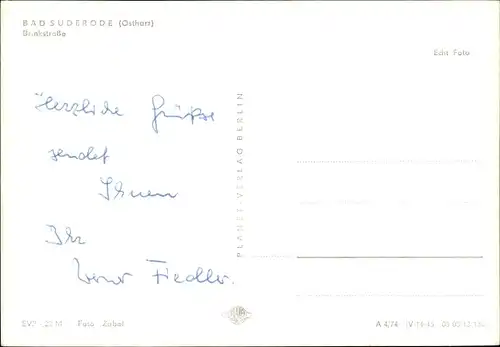 BAD SUDERODE (Ostharz)
Brinkstraße
Echt Foto
Herzliche Grüße
sendet
Ihnen
Ihr
Werner Fiedler.
PLANET-VERLAG BERLIN
EVP -,20 M Foto Zabel A 4/74 IV-14-45